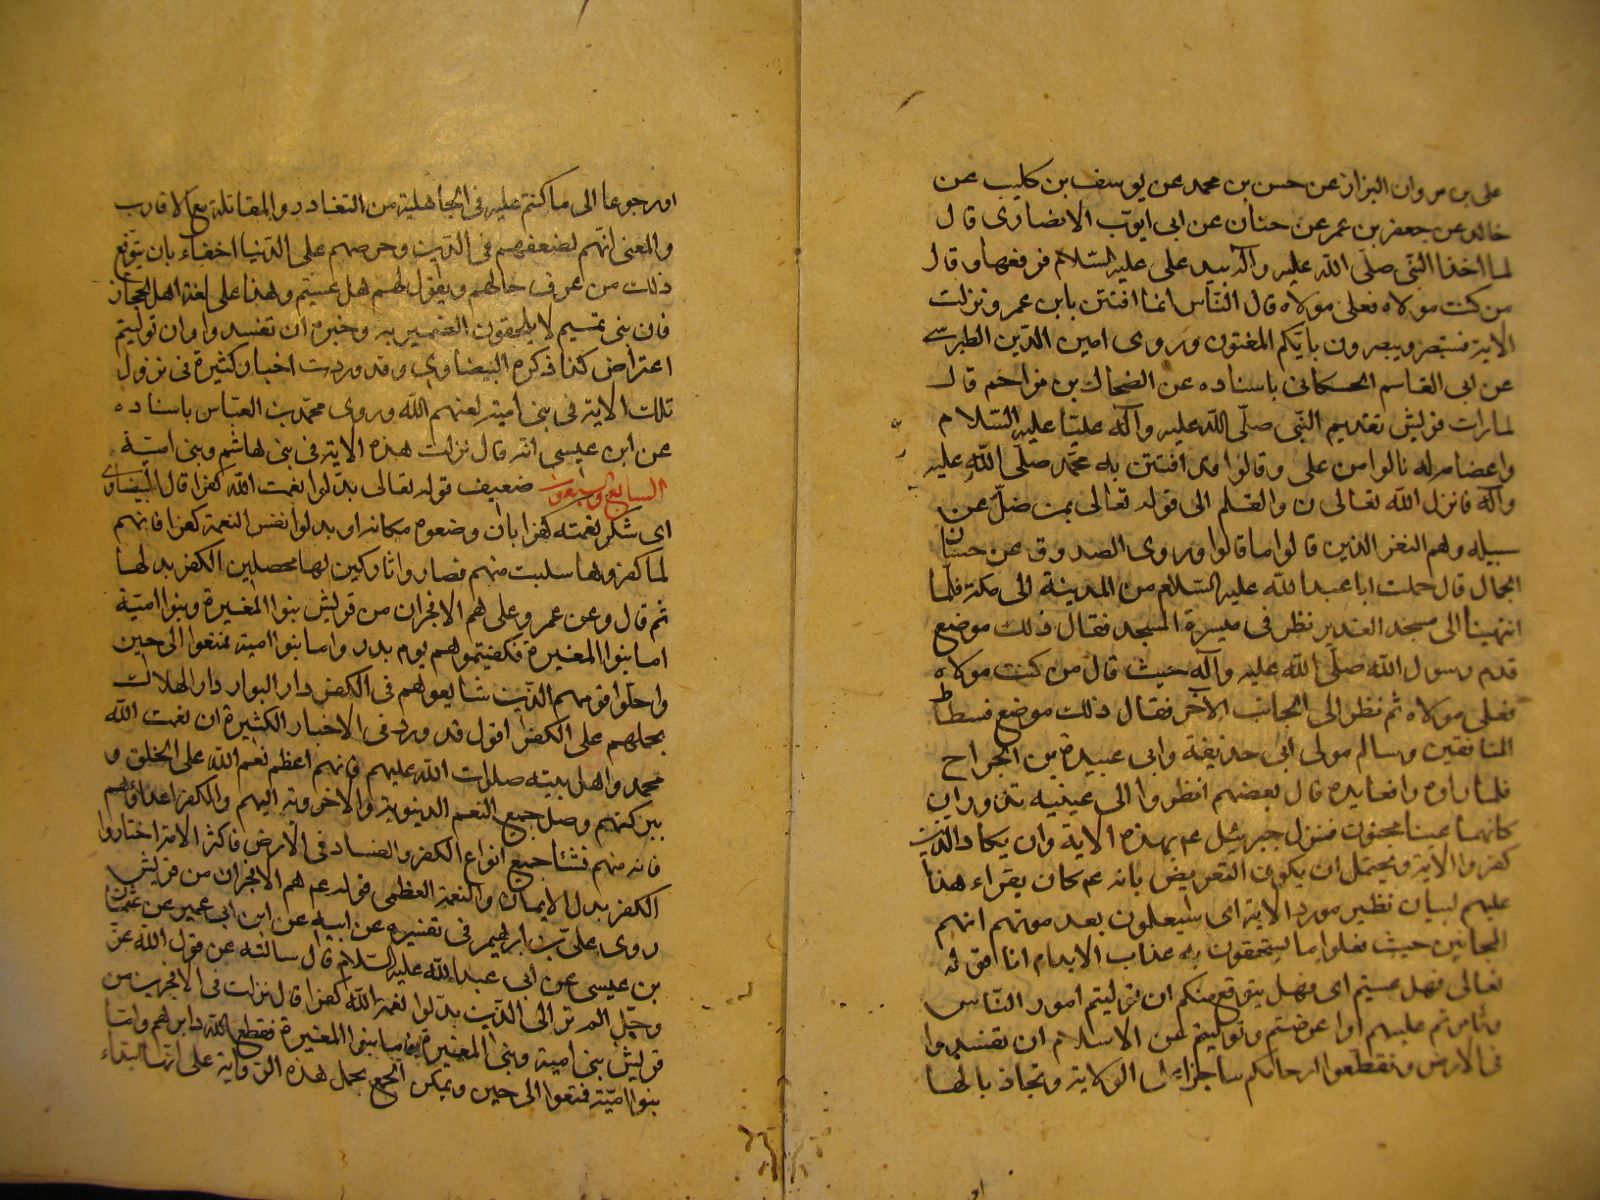 علی بن مروان البزاز عن حسن بن محمد عن یوسف بن کلیب عن
خالد عن جعفر بن عمر عن حنان عن ابی ایوب الانصاری قال
لما اخذ النبی صلی الله علیه وآله بید علی علیه السلام فرفعها وقال
من کنت مولاه فعلی مولاه قال الناس انما افتتن بابن عمه ونزلت
الایة فستبصر ویبصرون بایکم المفتون وروی امین الدین الطبرسی
عن ابی القاسم الحسکانی باسناده عن الضحاک بن مزاحم قال
لما رات قریش تقدیم النبی صلی الله علیه وآله علیا علیه السلام
واعضامه له نالوا من علی وقالوا قد افتتن به محمد صلی الله علیه
وآله فانزل الله تعالی ن والقلم الی قوله تعالی بمن ضل عن
سبیله وهم النفر الذین قالوا ما قالوا وروی الصدوق عن حسان
الجمال قال حملت ابا عبدالله علیه السلام من المدینة الی مکة فلما
انتهینا الی مسجد الغدیر نظر فی میسرة المسجد فقال ذلک موضع
قدم رسول الله صلی الله علیه وآله حیث قال من کنت مولاه
فعلی مولاه ثم نظر الی الجانب الآخر فقال ذلک موضع فسطاط
المنافقین وسالم مولی ابی حذیفة وابی عبیدة بن الجراح
فلما راوه رافعا یده قال بعضهم انظروا الی عینیه تدوران
کانهما عینا مجنون فنزل جبرئیل عم بهذه الایة وان یکاد الذین
کفروا الایة ویحتمل ان یکون التعریض بانه عم کان یقراء هذا
علیهم لبیان نظیر مورد الایة ای سیعلون بعد موتهم انهم
المجانین حیث فعلوا ما یستحقون به عذاب الابد ام انا قوله
تعالی فهل عسیتم ای فهل یتوقع منکم ان تولیتم امور الناس
وتامرتم علیهم او اعرضتم وتولیتم عن الاسلام ان تفسدوا
فی الارض وتقطعوا ارحامکم الولایة وتجاذبا لها
او رجوعا الی ما کنتم علیه فی الجاهلیة من التغادر والمقاتلة مع الاقارب
والمعنی انهم لضعفهم فی الدین وحرصهم علی الدنیا احقاء بان یتوقع
ذلک من عرف حالهم ویقول لهم هل عسیتم وهذا علی لغة اهل الحجاز
فان بنی تمیم لا یلحقون الضمیر به وخبره ان تفسدوا وان تولیتم
اعتراض کذا ذکره البیضاوی وقد وردت اخبار کثیرة فی نزول
تلک الایة فی بنی امیة لعنهم الله وروی محمد بن العباس باسناده
عن ابن عیسی انه قال نزلت هذه الایة فی بنی هاشم وبنی امیة
السابع وسبعون ضعیف قوله تعالی بدلوا نعمت الله کفرا قال البیضاوی
ای شکر نعمته کفرا بان وضعوه مکانه او بدلوا نفس النعمة کفرا فانهم
لما کفروها سلبت منهم فصاروا تارکین لها محصلین الکفر بدلها
ثم قال وعن عمر وعلی هم الافجران من قریش بنوا المغیرة وبنوا امیة
اما بنوا المغیرة فکفیتموهم یوم بدر واما بنوا امیة تمتعوا الی حین
واحلوا قومهم الذین شایعوهم فی الکفر دار البوار دار الهلاک
بحملهم علی الکفر اقول قد ورد فی الاخبار الکثیرة ان نعمت الله
محمد واهل بیته صلوات الله علیهم فانهم اعظم نعم الله علی الخلق و
ببرکتهم وصل جمیع النعم الدنیویة والاخرویة الیهم والکفر اعداؤهم
فانه منهم نشئا جمیع انواع الکفر والفساد فی الارض فاکثر الامة اختاروا
الکفر بدل الایمان والنعمة العظمی قوله عم هم الافجران من قریش
روی علی بن ابرهیم فی تفسیره عن ابیه عن ابن ابی عمیر عن عثمان
بن عیسی عن ابی عبدالله علیه السلام قال سالته عن قول الله عز
وجل الم تر الی الذین بدلوا نعمة الله کفرا قال نزلت فی الافجرین من
قریش بنی امیة وبنی المغیرة فاما بنوا المغیرة فقطع الله دابرهم واما
بنوا امیة فتمتعوا الی حین ویمکن الجمع بحمل هذه الروایة علی انها ابتداء